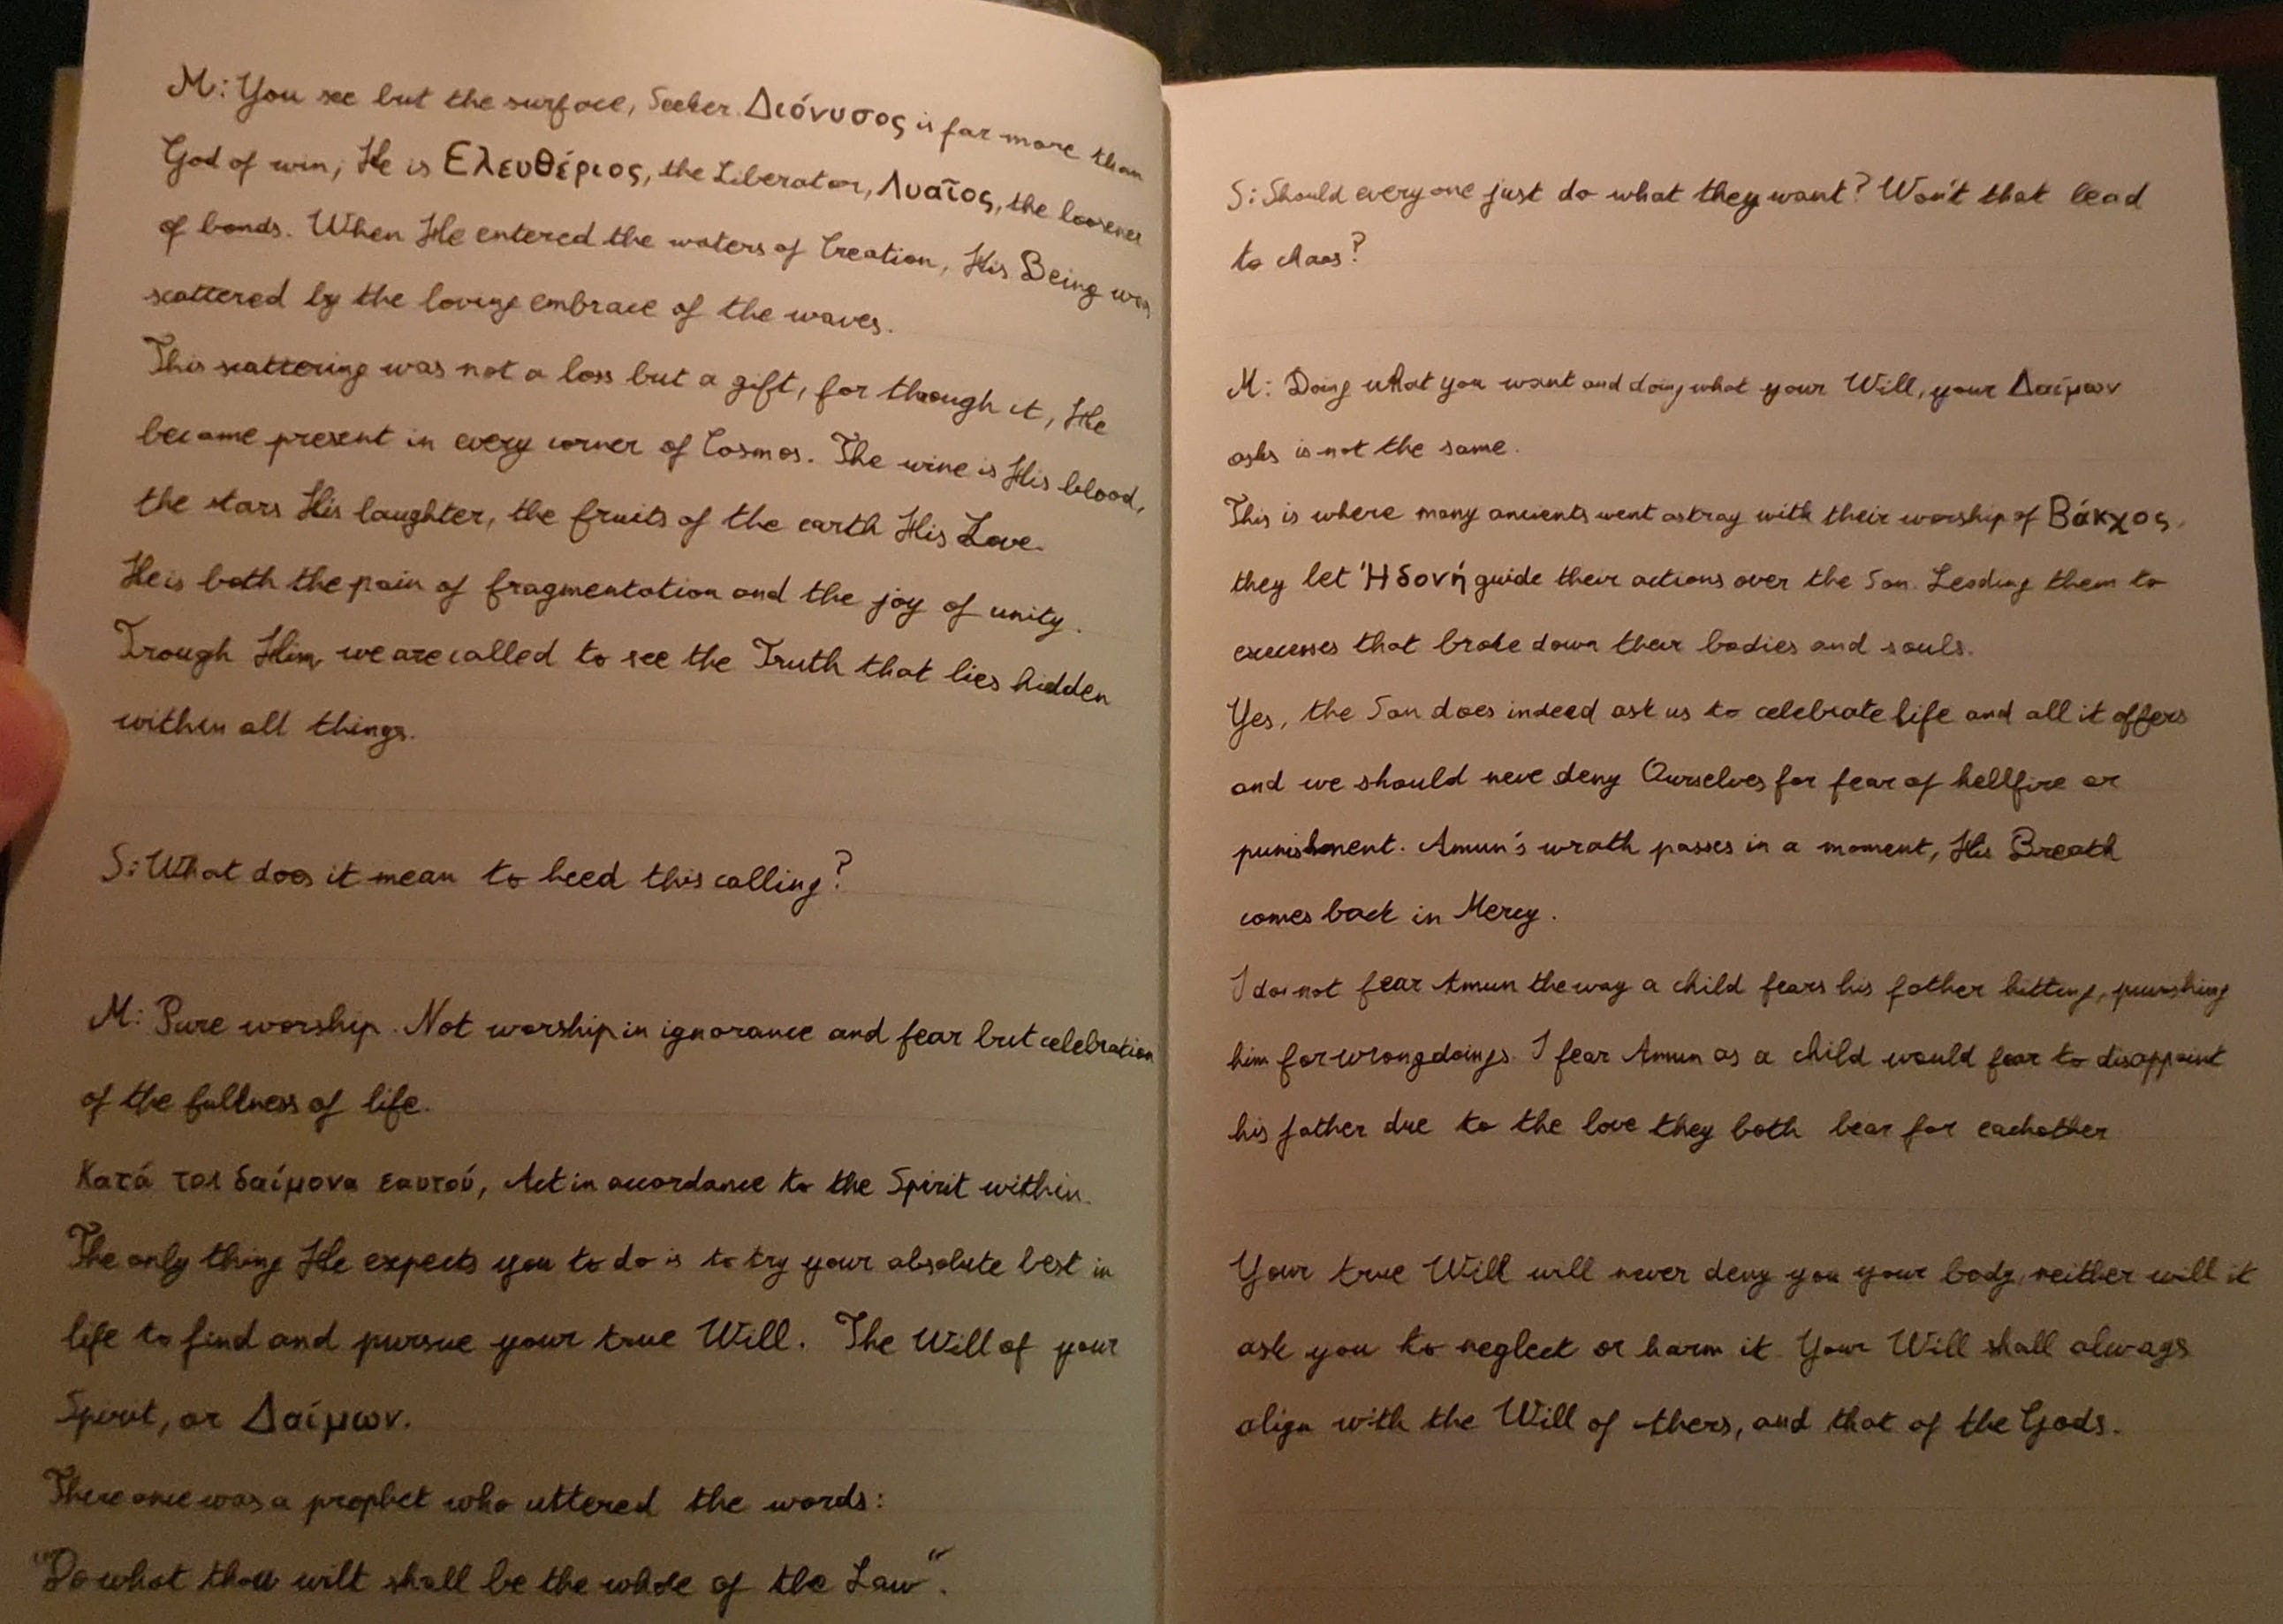 M: You see but the surface, Seeker. Διόνυσος is far more than
God of win; He is Ελευθέριος, the Liberator, Λυαῖος, the loosener
of bonds. When He entered the waters of Creation, His Being was
scattered by the loving embrace of the waves.
This scattering was not a loss but a gift, for through it, He
became present in every corner of Cosmos. The wine is His blood,
the stars His laughter, the fruits of the earth His Love.
He is both the pain of fragmentation and the joy of unity.
Trough Him, we are called to see the Truth that lies hidden
within all things.
S: What does it mean to heed this calling?
M: Pure worship. Not worship in ignorance and fear but celebration
of the fullness of life.
Κατά τον δαίμονα εαυτού, Act in accordance to the Spirit within.
The only thing He expects you to do is to try your absolute best in
life to find and pursue your true Will. The Will of your
Spirit, or Δαίμων.
There once was a prophet who uttered the words:
"Do what thou wilt shall be the whole of the Law".
S: Should everyone just do what they want? Won't that lead
to chaos?
M: Doing what you want and doing what your Will, your Δαίμων
asks is not the same.
This is where many ancients went astray with their worship of Βάκχος,
they let Ἡδονή guide their actions over the Son. Leading them to
excesses that broke down their bodies and souls.
Yes, the Son does indeed ask us to celebrate life and all it offers
and we should neve deny Ourselves for fear of hellfire or
punishment. Amun's wrath passes in a moment, His Breath
comes back in Mercy.
I do not fear Amun the way a child fears his father hitting, punishing
him for wrongdoings. I fear Amun as a child would fear to disappoint
his father due to the love they both bear for eachother
Your true Will will never deny you your body, neither will it
ask you to neglect or harm it. Your Will shall always
align with the Will of others, and that of the Gods.